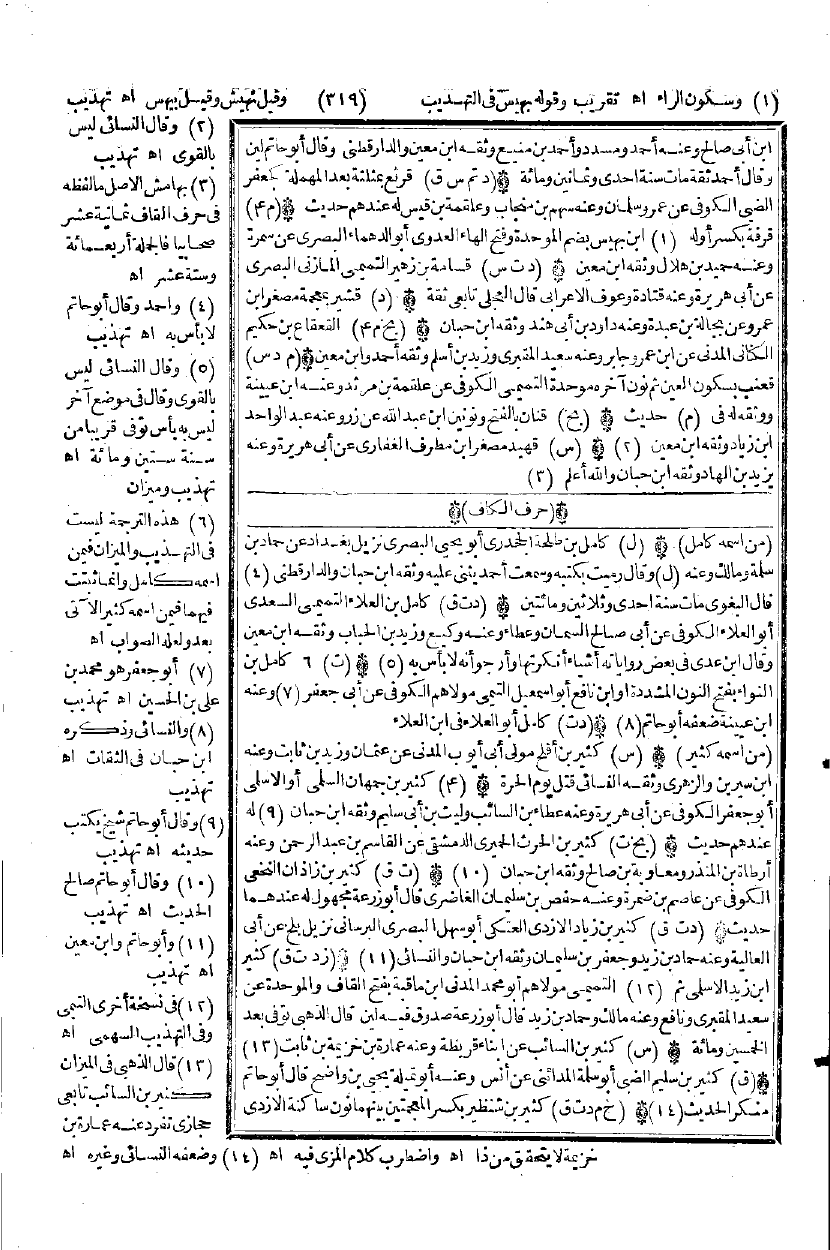 (١) وسكون الراء اه تقريب وقوله بهيس فى التهذيب (٣١٩) وقيل نهيش وقيل بيهس اه تهذيب
ابن أبى صالح وعنه أحمد ومسدد وأحمد بن منيع وثقه ابن معين والدارقطنى وقال أبو حاتم لين
وقال أحمد ثقة مات سنة احدى وثمانين ومائة (د تم س ق) قرثع بمثلثة بعد المهملة كجعفر
الضبى الكوفى عن عمر وسلمان وعنه سهم بن منجاب وعلقمة بن قيس له عندهم حديث (م ٤)
قرفة بكسر أوله (١) ابن بهيس بضم الموحدة وفتح الهاء العدوى أبو الدهماء البصرى عن سمرة
وعنه حميد بن هلال وثقه ابن معين (د ت س) قسامة بن زهير التميمى المازنى البصرى
عن أبى هريرة وعنه قتادة وعوف الاعرابى قال العجلى تابعى ثقة (د) قشير بمعجمة مصغر ابن
عمرو عن بجالة بن عبدة وعنه داود بن أبى هند وثقه ابن حبان (بخ م ٤) القعقاع بن حكيم
الكنانى المدنى عن ابن عمر وجابر وعنه سعيد المقبرى وزيد بن أسلم وثقه أحمد وابن معين (م د س)
قعنب بسكون العين ثم نون آخره موحدة التميمى الكوفى عن علقمة بن مرثد وعنه ابن عيينة
ووثقه له فى (م) حديث (بخ) قنان بالفتح ونونين ابن عبد الله عن زر وعنه عبد الواحد
ابن زياد وثقه ابن معين (٢) (س) قهيد مصغر ابن مطرف الغفارى عن أبى هريرة وعنه
يزيد بن الهاد وثقه ابن حبان والله أعلم (٣)
(حرف الكاف)
(من اسمه كامل) (ل) كامل بن طلحة الجحدرى أبو يحيى البصرى نزيل بغداد عن حماد بن
سلمة ومالك وعنه (ل) وقال رميت بكتبه وسمعت أحمد يثنى عليه وثقه ابن حبان والدارقطنى (٤)
قال البغوى مات سنة احدى وثلاثين ومائتين (د ت ق) كامل بن العلاء التميمى السعدى
أبو العلاء الكوفى عن أبى صالح السمان وعطاء وعنه وكيع وزيد بن الحباب وثقه ابن معين
وقال ابن عدى فى بعض رواياته أشياء أنكرتها وأرجو أنه لا بأس به (٥) (ت) ٦ كامل بن
النواء بفتح النون المشددة او ابن نافع أبو اسمعيل التيمى مولاهم الكوفى عن أبى جعفر (٧) وعنه
ابن عيينة ضعفه أبو حاتم (٨) (د ت) كامل أبو العلاء فى ابن العلاء
(من اسمه كثير) (س) كثير بن أفلح مولى أبى أيوب المدنى عن عثمان وزيد بن ثابت وعنه
ابن سيرين والزهرى وثقه النسائى قتل يوم الحرة (٤) كثير بن جمهان السلمى أو الاسلمى
أبو جعفر الكوفى عن أبى هريرة وعنه عطاء بن السائب وليث بن أبى سليم وثقه ابن حبان (٩) له
عندهم حديث (بخ ت) كثير بن الحرث الحميرى الدمشقى عن القاسم بن عبد الرحمن وعنه
أرطاة بن المنذر ومعاوية بن صالح وثقه ابن حبان (١٠) (ت ق) كثير بن زاذان النخعى
الكوفى عن عاصم بن ضمرة وعنه حفص بن سليمان الغاضرى قال أبو زرعة مجهول له عندهما
حديث (د ت ق) كثير بن زياد الازدى العتكى أبو سهل البصرى البرسانى نزيل بلخ عن أبى
العالية وعنه حماد بن زيد وجعفر بن سليمان وثقه ابن حبان والنسائى (١١) (ز د ت ق) كثير
ابن زيد الاسلمى ثم (١٢) التميمى مولاهم أبو محمد المدنى ابن مافنه بفتح القاف والموحدة عن
سعيد المقبرى ونافع وعنه مالك وحماد بن زيد قال أبو زرعة صدوق فيه لين قال الذهبى توفى بعد
الخمسين ومائة (س) كثير بن السائب عن ابناء قريظة وعنه عمارة بن خزيمة بن ثابت (١٣)
(ق) كثير بن سليم الضبى أبو سلمة المدائنى عن أنس وعنه أبو تميلة يحيى بن واضح قال أبو حاتم
منكر الحديث (١٤) (خ م د ت ق) كثير بن شنظير بكسر المعجمتين بينهما نون ساكنة الازدى
(٢) وقال النسائى ليس
بالقوى اه تهذيب
(٣) بهامش الاصل مالفظه
فى حرف القاف ثمانية عشر
صحابيا فالجملة أربعمائة
وستة عشر اه
(٤) واحمد وقال أبو حاتم
لا بأس به اه تهذيب
(٥) وقال النسائى ليس
بالقوى وقال فى موضع آخر
ليس به بأس توفى قريبا من
سنة ستين ومائة اه
تهذيب وميزان
(٦) هذه الترجمة ليست
فى التهذيب والميزان فيمن
اسمه كامل وانما ثبتت
فيهما فيمن اسمه كثير الآتى
بعد ولعله الصواب اه
(٧) أبو جعفر هو محمد بن
على بن الحسين اه تهذيب
(٨) والنسائى وذكره
ابن حبان فى الثقات اه
تهذيب
(٩) وقال أبو حاتم شيخ يكتب
حديثه اه تهذيب
(١٠) وقال أبو حاتم صالح
الحديث اه تهذيب
(١١) وأبو حاتم وابن معين
اه تهذيب
(١٢) فى نسخة أخرى التيمى
وفى التهذيب السهمى اه
(١٣) قال الذهبى فى الميزان
كثير بن السائب تابعى
حجازى تفرد عنه عمارة بن
خزيمة لا يتحقق من ذا اه واضطرب كلام المزى فيه اه (١٤) وضعفه النسائى وغيره اه